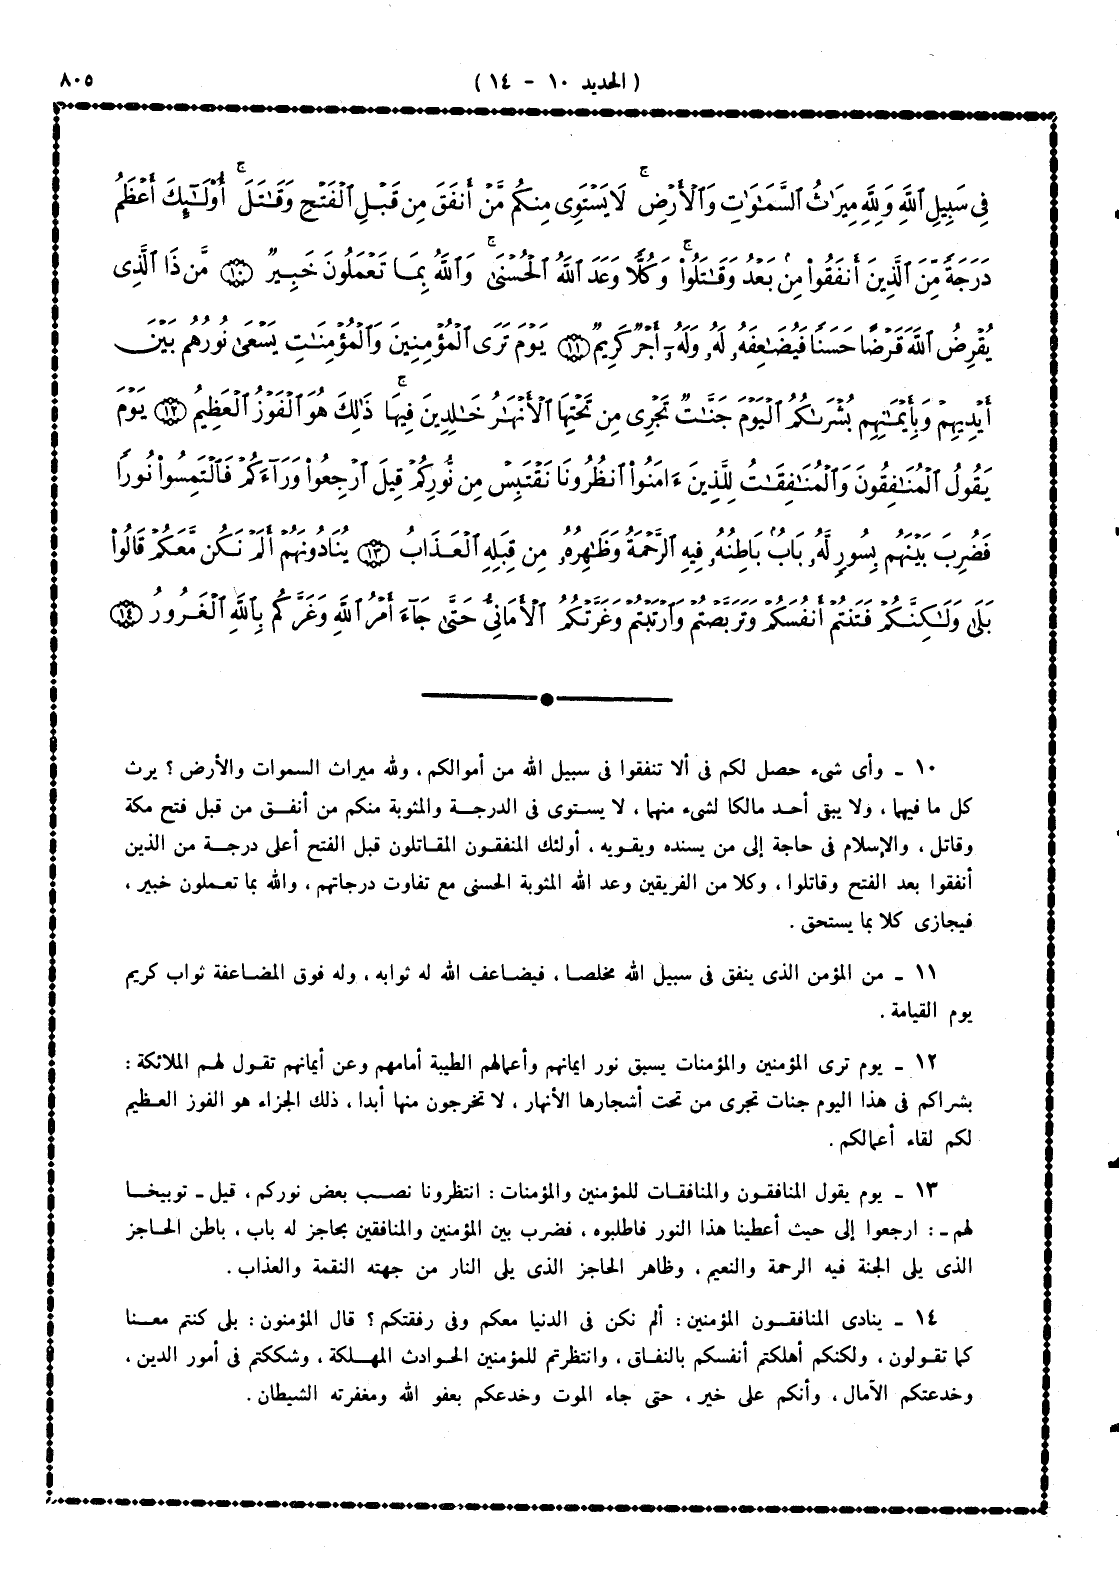 ٨٠٥
( الحديد ١٠ - ١٤ )
فِي سَبِيلِ ٱللَّهِ وَلِلَّهِ مِيرَٰثُ ٱلسَّمَٰوَٰتِ وَٱلْأَرْضِ ۚ لَا يَسْتَوِي مِنكُم مَّنْ أَنفَقَ مِن قَبْلِ ٱلْفَتْحِ وَقَٰتَلَ ۚ أُوْلَٰٓئِكَ أَعْظَمُ
دَرَجَةً مِّنَ ٱلَّذِينَ أَنفَقُواْ مِنۢ بَعْدُ وَقَٰتَلُواْ ۚ وَكُلًّا وَعَدَ ٱللَّهُ ٱلْحُسْنَىٰ ۚ وَٱللَّهُ بِمَا تَعْمَلُونَ خَبِيرٌ ﴿١٠﴾ مَّن ذَا ٱلَّذِي
يُقْرِضُ ٱللَّهَ قَرْضًا حَسَنًا فَيُضَٰعِفَهُۥ لَهُۥ وَلَهُۥٓ أَجْرٌ كَرِيمٌ ﴿١١﴾ يَوْمَ تَرَى ٱلْمُؤْمِنِينَ وَٱلْمُؤْمِنَٰتِ يَسْعَىٰ نُورُهُم بَيْنَ
أَيْدِيهِمْ وَبِأَيْمَٰنِهِم بُشْرَىٰكُمُ ٱلْيَوْمَ جَنَّٰتٌ تَجْرِي مِن تَحْتِهَا ٱلْأَنْهَٰرُ خَٰلِدِينَ فِيهَا ۚ ذَٰلِكَ هُوَ ٱلْفَوْزُ ٱلْعَظِيمُ ﴿١٢﴾ يَوْمَ
يَقُولُ ٱلْمُنَٰفِقُونَ وَٱلْمُنَٰفِقَٰتُ لِلَّذِينَ ءَامَنُواْ ٱنظُرُونَا نَقْتَبِسْ مِن نُّورِكُمْ قِيلَ ٱرْجِعُواْ وَرَآءَكُمْ فَٱلْتَمِسُواْ نُورًا
فَضُرِبَ بَيْنَهُم بِسُورٍ لَّهُۥ بَابٌۢ بَاطِنُهُۥ فِيهِ ٱلرَّحْمَةُ وَظَٰهِرُهُۥ مِن قِبَلِهِ ٱلْعَذَابُ ﴿١٣﴾ يُنَادُونَهُمْ أَلَمْ نَكُن مَّعَكُمْ قَالُواْ
بَلَىٰ وَلَٰكِنَّكُمْ فَتَنتُمْ أَنفُسَكُمْ وَتَرَبَّصْتُمْ وَٱرْتَبْتُمْ وَغَرَّتْكُمُ ٱلْأَمَانِيُّ حَتَّىٰ جَآءَ أَمْرُ ٱللَّهِ وَغَرَّكُم بِٱللَّهِ ٱلْغَرُورُ ﴿١٤﴾
١٠ ـ وأى شىء حصل لكم فى ألا تنفقوا فى سبيل الله من أموالكم ، ولله ميراث السموات والأرض ؟ يرث
كل ما فيها ، ولا يبقى أحد مالكا لشىء منها ، لا يستوى فى الدرجة والمثوبة منكم من أنفق من قبل فتح مكة
وقاتل ، والإسلام فى حاجة إلى من يسنده ويقويه ، أولئك المنفقون المقاتلون قبل الفتح أعلى درجة من الذين
أنفقوا بعد الفتح وقاتلوا ، وكلا من الفريقين وعد الله المثوبة الحسنى مع تفاوت درجاتهم ، والله بما تعملون خبير ،
فيجازى كلا بما يستحق .
١١ ـ من المؤمن الذى ينفق فى سبيل الله مخلصا ، فيضاعف الله له ثوابه ، وله فوق المضاعفة ثواب كريم
يوم القيامة .
١٢ ـ يوم ترى المؤمنين والمؤمنات يسبق نور ايمانهم وأعمالهم الطيبة أمامهم وعن أيمانهم تقول لهم الملائكة :
بشراكم فى هذا اليوم جنات تجرى من تحت أشجارها الأنهار ، لا تخرجون منها أبدا ، ذلك الجزاء هو الفوز العظيم
لكم لقاء أعمالكم .
١٣ ـ يوم يقول المنافقون والمنافقات للمؤمنين والمؤمنات : انتظرونا نصب بعض نوركم ، قيل ـ توبيخا
لهم ـ : ارجعوا إلى حيث أعطينا هذا النور فاطلبوه ، فضرب بين المؤمنين والمنافقين بحاجز له باب ، باطن الحاجز
الذى يلى الجنة فيه الرحمة والنعيم ، وظاهر الحاجز الذى يلى النار من جهته النقمة والعذاب .
١٤ ـ ينادى المنافقون المؤمنين : ألم نكن فى الدنيا معكم وفى رفقتكم ؟ قال المؤمنون : بلى كنتم معنا
كما تقولون ، ولكنكم أهلكتم أنفسكم بالنفاق ، وانتظرتم للمؤمنين الحوادث المهلكة ، وشككتم فى أمور الدين ،
وخدعتكم الآمال ، وأنكم على خير ، حتى جاء الموت وخدعكم بعفو الله ومغفرته الشيطان .